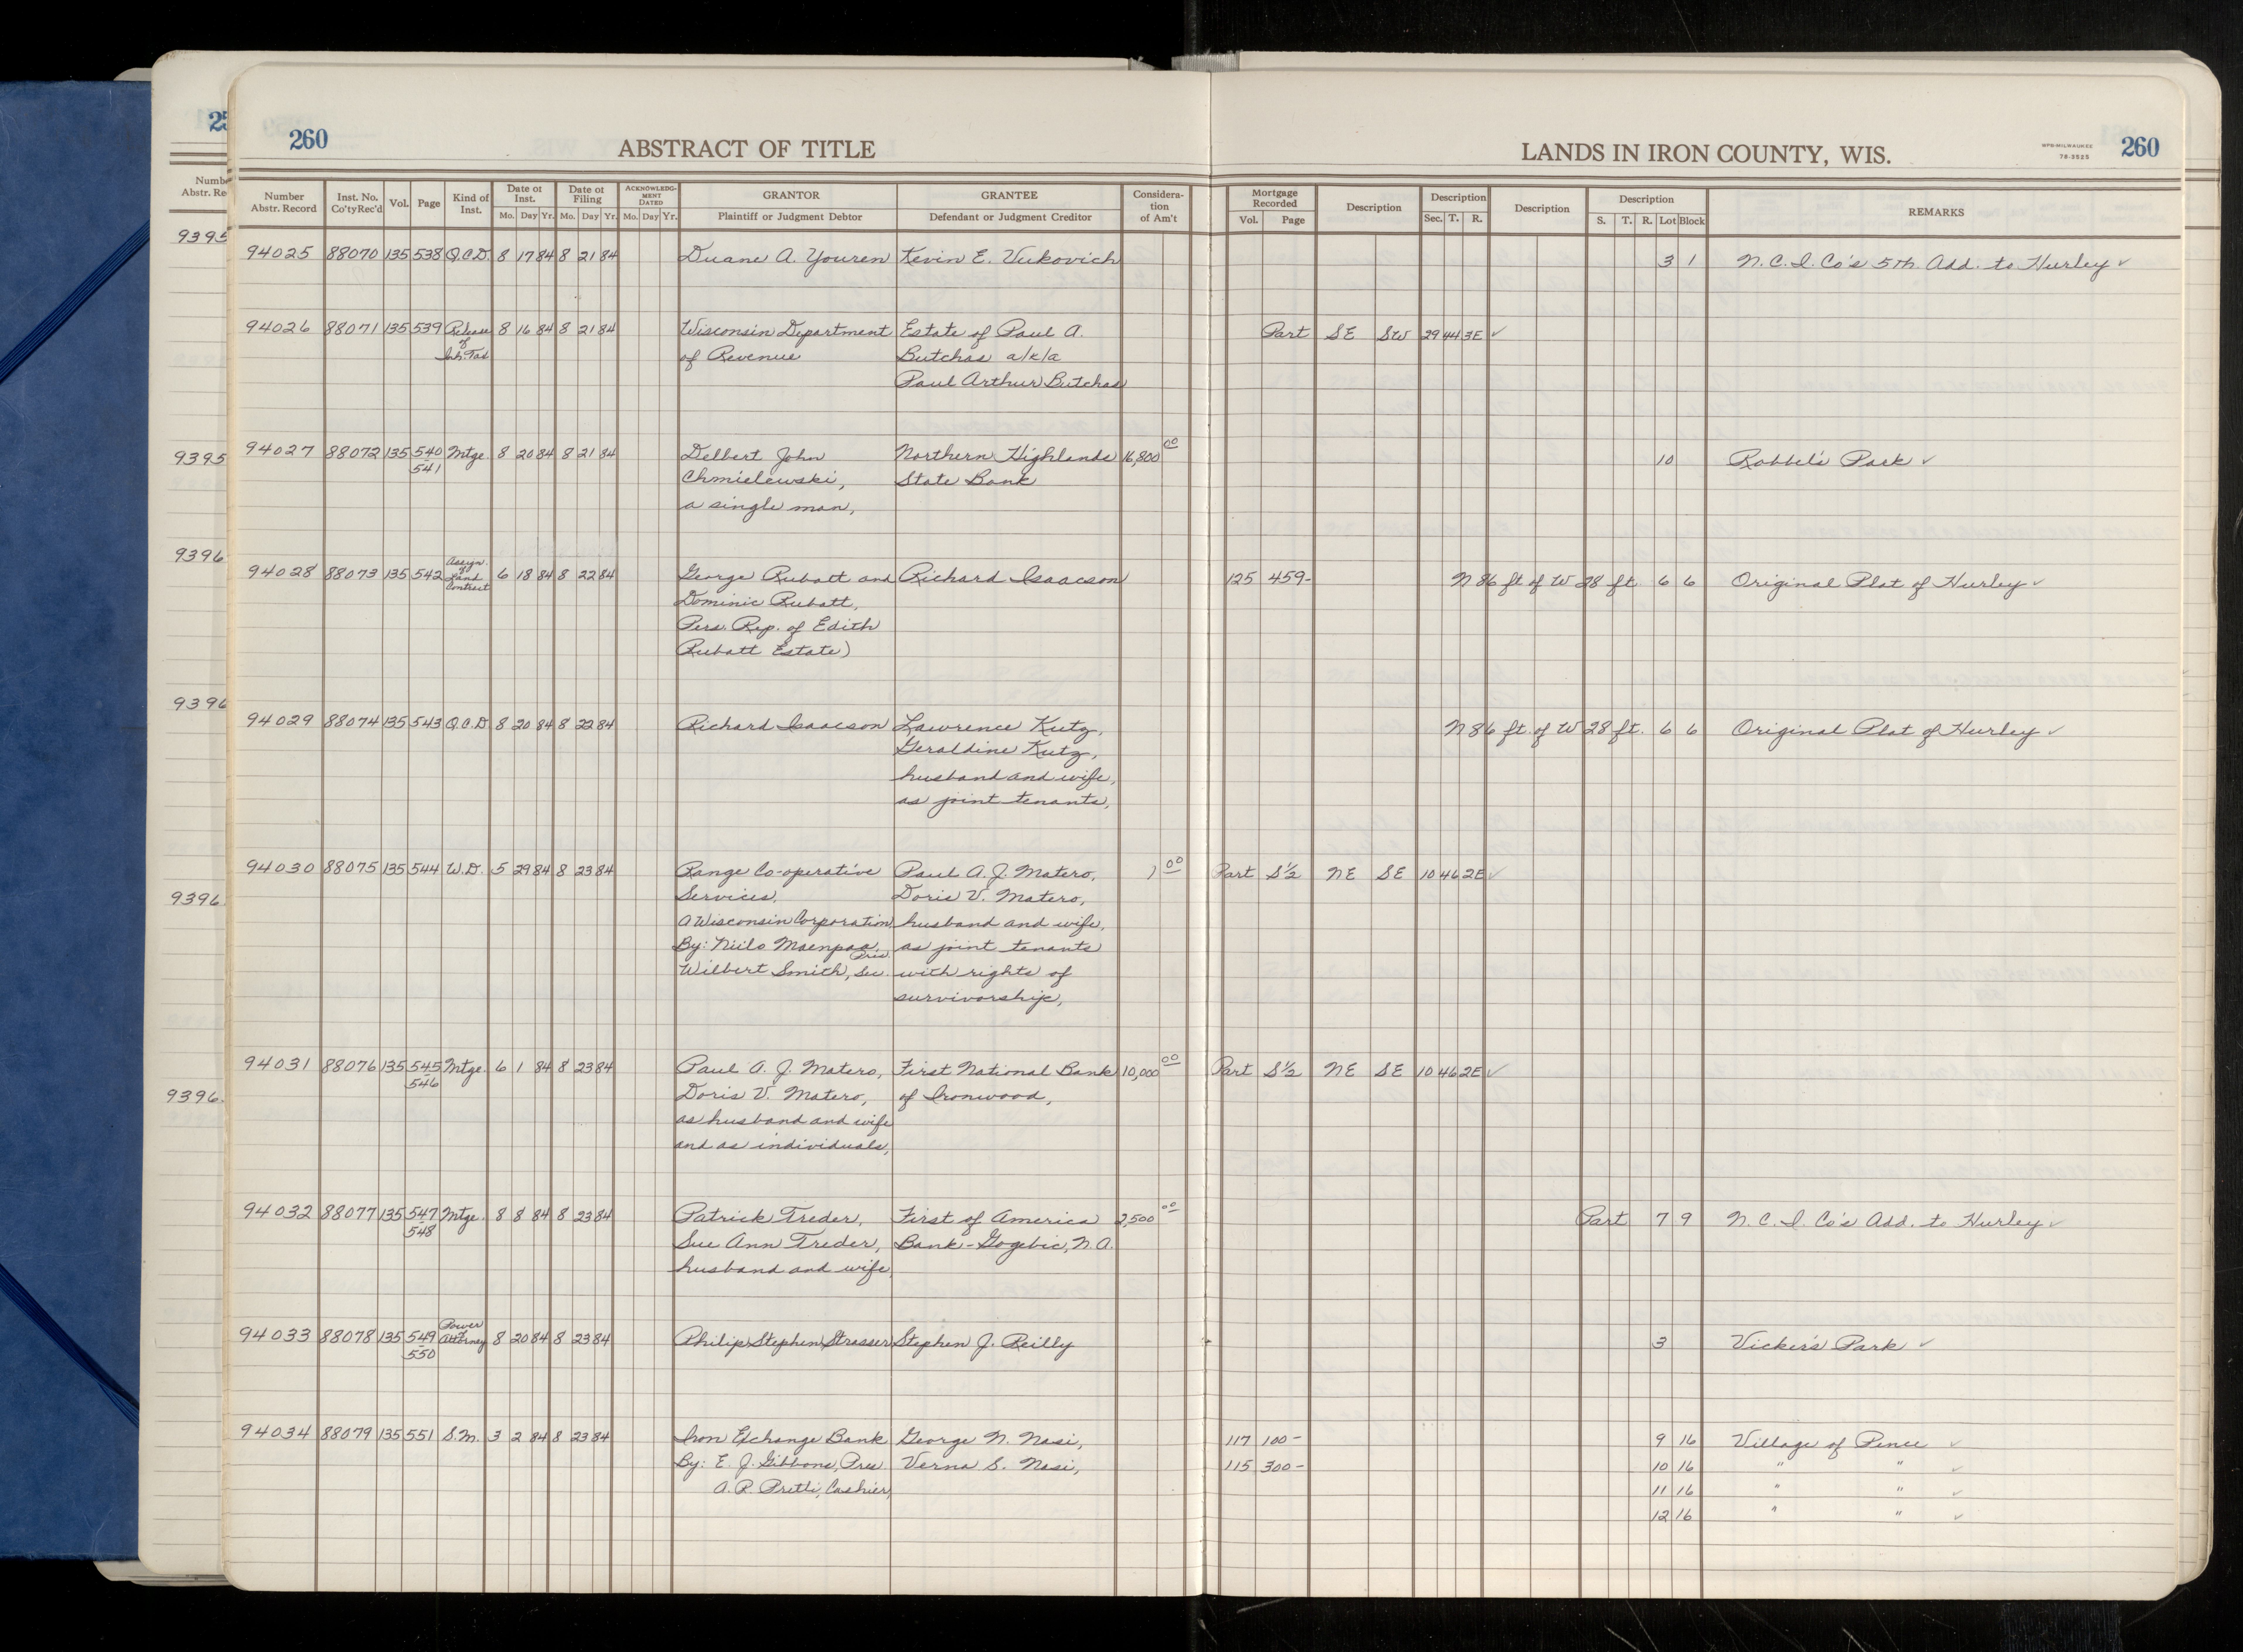 25
260
ABSTRACT OF TITLE
LANDS IN IRON COUNTY, WIS.
WPM-MILWAUKEE
78-3525
260
Numb
Abstr. Re
Number Abstr. Record | Inst. No. Co'ty Rec'd | Vol. | Page | Kind of Inst. | Date of Inst. Mo. Day Yr. | Date of Filing Mo. Day Yr. | ACKNOWLEDGMENT DATED Mo. Day Yr. | GRANTOR Plaintiff or Judgment Debtor | GRANTEE Defendant or Judgment Creditor | Consideration of Am't | Mortgage Recorded Vol. Page | Description | Description Sec. T. R. | Description | Description S. T. R. Lot Block | REMARKS
9395
94025 88070 135 538 Q.C.D. 8 17 84 8 21 84 Duane A. Youren Kevin E. Vukovich 3 1 N.C.I. Co's 5th Add. to Hurley ✓
94026 88071 135 539 Release 8 16 84 8 21 84 Wisconsin Department Estate of Paul A. Part SE SW 29 44 3E ✓
of
Inh. Tax of Revenue Butchas a/k/a
Paul Arthur Butchas
9395
94027 88072 135 540 Mtge. 8 20 84 8 21 84 Delbert John Northern Highlands 16,800 00 10 Robbel's Park ✓
541 Chmielewski, State Bank
a single man,
9396
94028 88073 135 542 Assign. of Land Contract 6 18 84 8 22 84 George Rubatt and Richard Isaacson 125 459- N 86 ft of W 28 ft. 6 6 Original Plat of Hurley ✓
Dominic Rubatt,
Pers. Rep. of Edith
Rubatt Estate)
9396
94029 88074 135 543 Q.C.D 8 20 84 8 22 84 Richard Isaacson Lawrence Kutz, N 86 ft. of W 28 ft. 6 6 Original Plat of Hurley ✓
Geraldine Kutz,
husband and wife,
as joint tenants,
94030 88075 135 544 W.D. 5 29 84 8 23 84 Range Co-operative Paul A. J. Matero, 1 00 Part S½ NE SE 10 46 2E ✓
9396
Services, Doris V. Matero,
A Wisconsin Corporation, husband and wife,
By: Niilo Maenpaa, Pres. as joint tenants
Wilbert Smith, Sec. with rights of
survivorship,
94031 88076 135 545 Mtge. 6 1 84 8 23 84 Paul A. J. Matero, First National Bank 10,000 00 Part S½ NE SE 10 46 2E ✓
546
9396.
Doris V. Matero, of Ironwood,
as husband and wife
and as individuals,
94032 88077 135 547 Mtge. 8 8 84 8 23 84 Patrick Treder, First of America 2,500 00 Part 7 9 N.C.I. Co's Add. to Hurley ✓
548 Sue Ann Treder, Bank-Gogebic, N.A.
husband and wife,
94033 88078 135 549 Power Attorney 8 20 84 8 23 84 Philip Stephen Strasser Stephen J. Reilly 3 Vicker's Park ✓
550
94034 88079 135 551 S.M. 3 2 84 8 23 84 Iron Exchange Bank George N. Nasi, 117 100- 9 16 Village of Pence ✓
By: E. J. Gibbons, Pres. Verna S. Nasi, 115 300- 10 16 " " ✓
A. P. Pretti, Cashier, 11 16 " " ✓
12 16 " " ✓